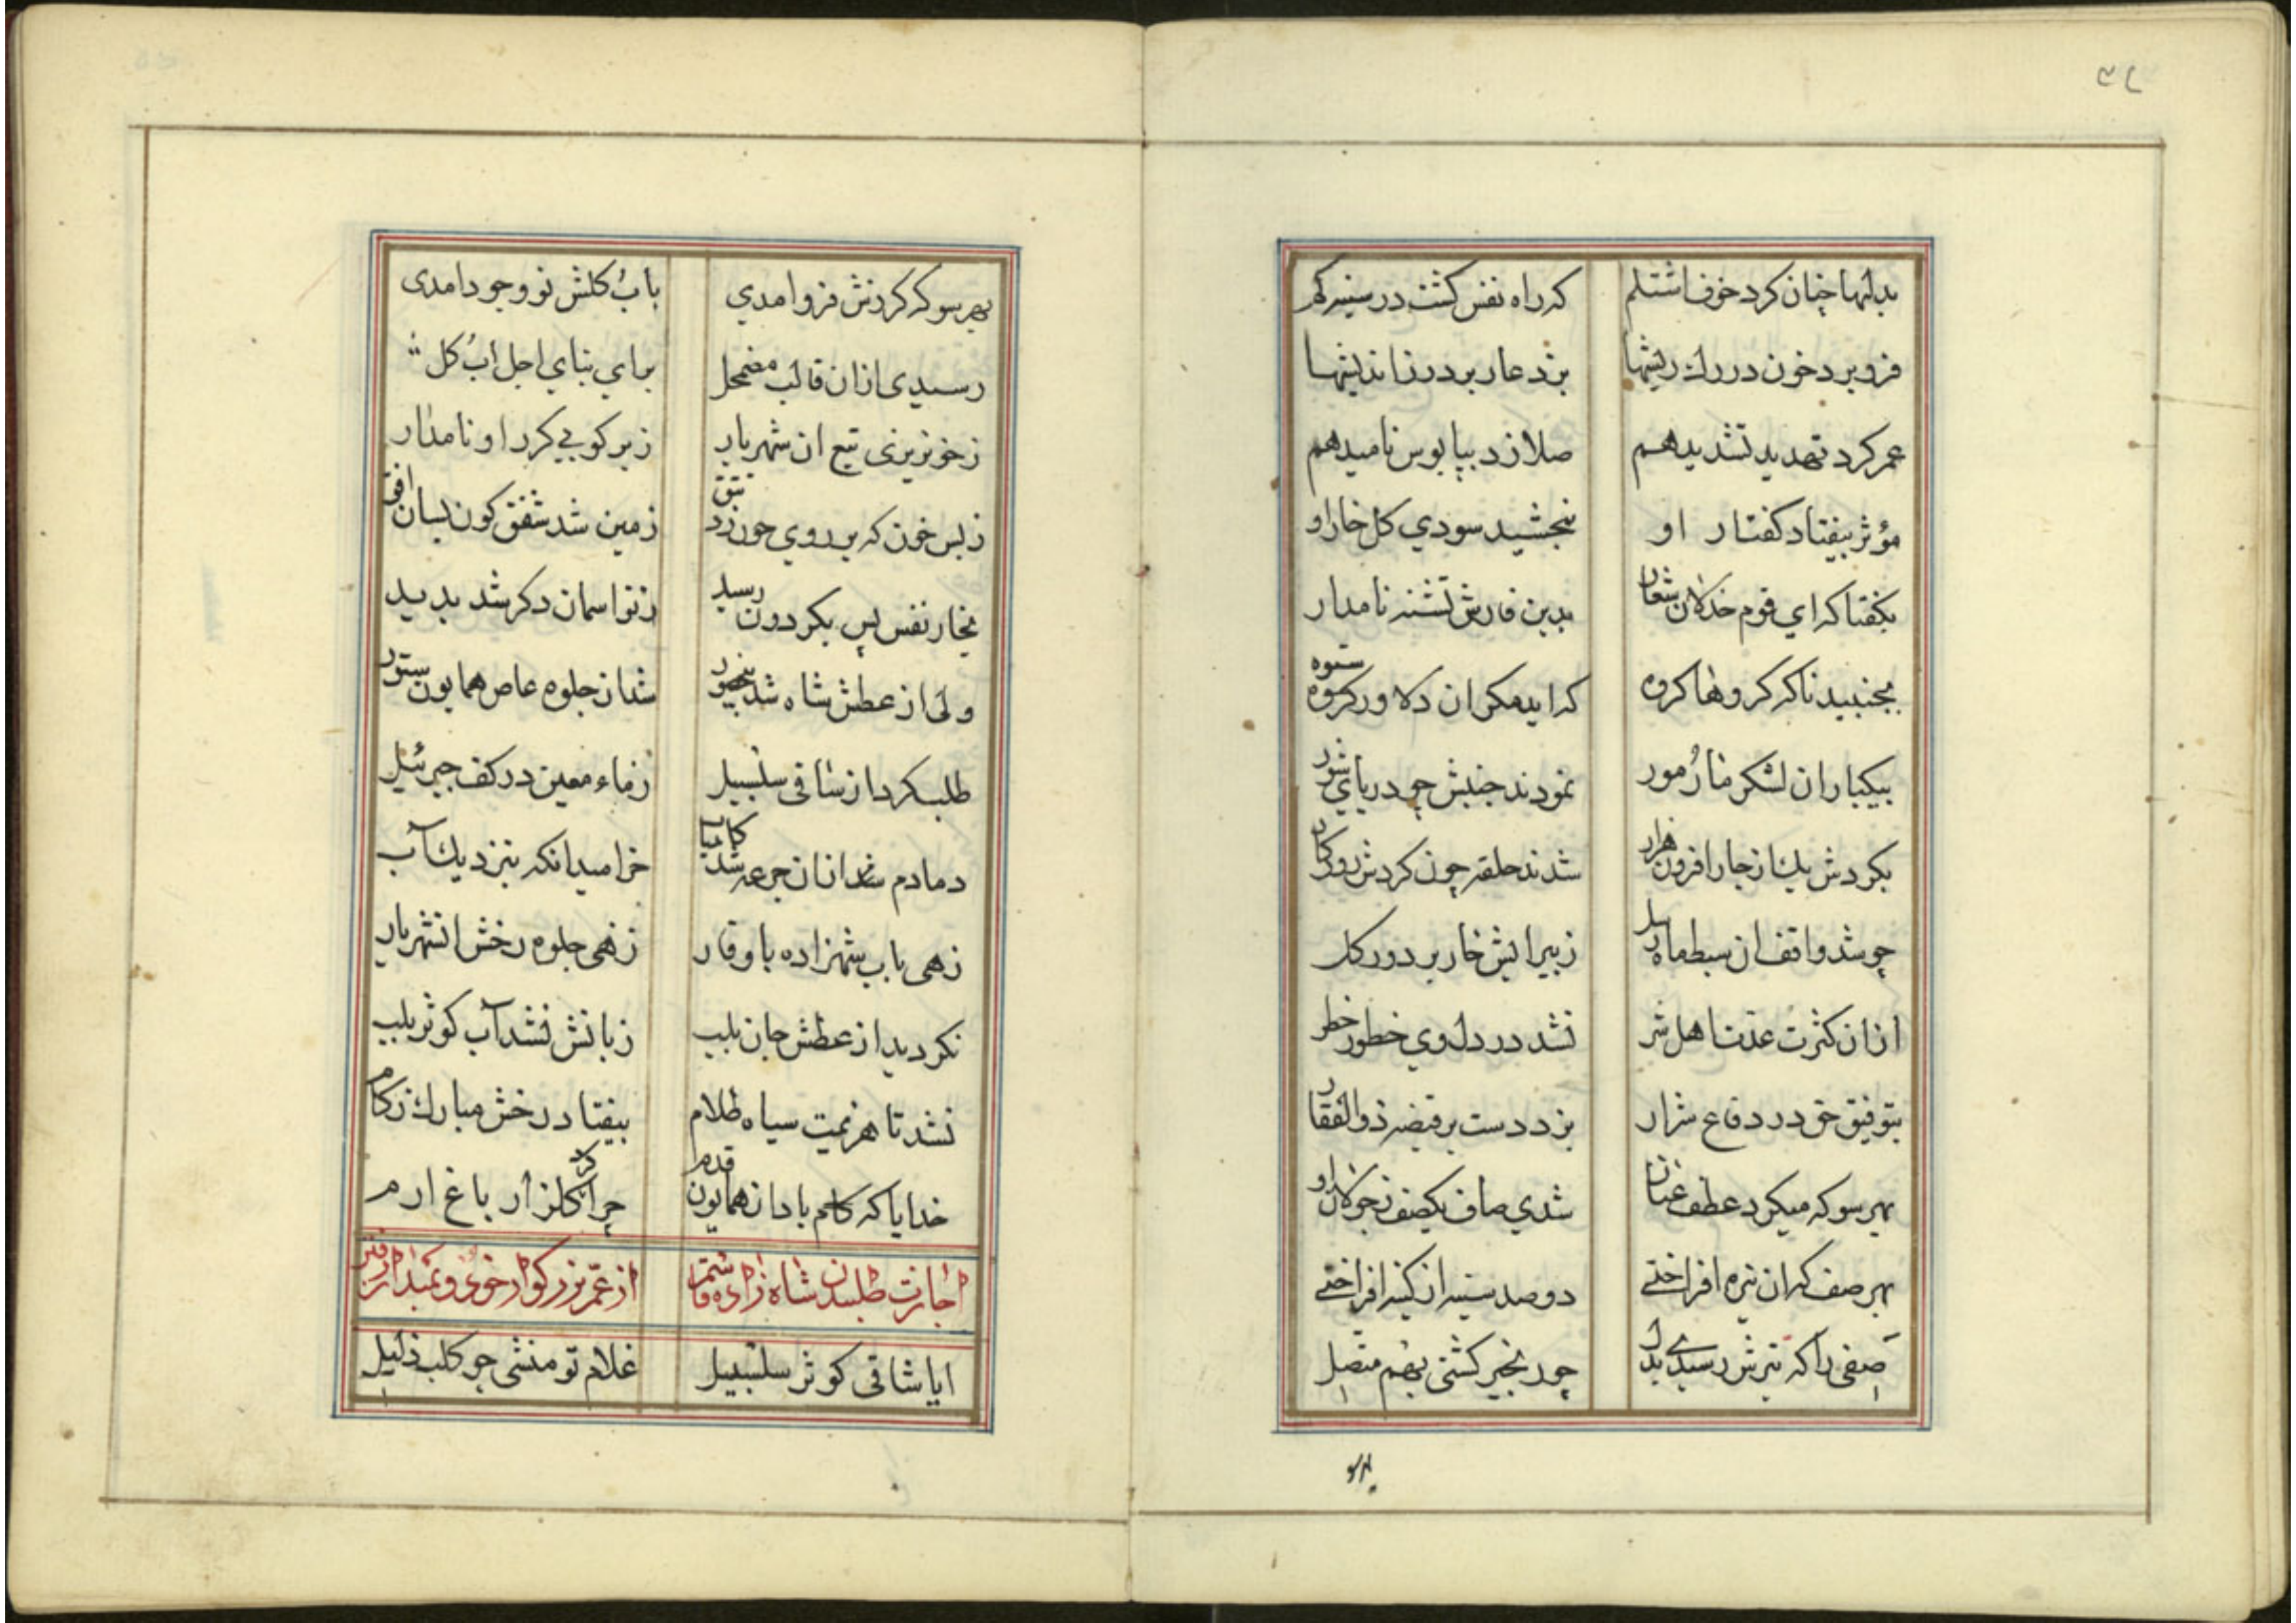 بدلها چنان کرد خوف اشتلم که راه نفس کشت در سینه کم
فرو برد خون در رك ریشها بزد عار بر درز اندیشها
عمر کرد تهدید تشدید هم صلا زد بپا بوس نامید هم
مؤثر بیفتاد کفتار او نبخشید سودی کل خار او
بکفتا که ای قوم خذلان شعار بدین فارش تشنه نامدار
بجنبید ناکه کروها کروه که اید مکر ان دلاور ستوه
بیکبار ان لشکر مار مور نمودند جنبش چو دریای شور
بکردش یك از چار افزون هزار شدند حلقه چون کردش روزکار
چو شد واقف ان سبط ماه رسل ز پیرایش خار بر دور کل
ازان کثرت عدت اهل شر نشد در دل وی خطور خطر
بتوفیق حق در دفاع شرار بزد دست بر قبضه ذوالفقار
بهر سو که میکرد عطف عنان شدی صاف یکصف ز جولان او
بهر صف که ان نیزه افراختی دو صد سینه از کینه افراختی
صفی را که تیرش رسیدی بدل چو زنجیر کشتی بهم متصل
بهر
بهر سو که کردنش فرو امدی باب کلش نو وجود امدی
رسیدی ازان قالب مضمحل برای بنای اجل اب کل
ز خونریزی تیغ ان شهریار ز سر کوبی کرز او نامدار
ز بس خون که بر روی خون زد تتق زمین شد شفق کون بسان افق
بخار نفس بس بکردون رسید ز نو اسمان دکر شد بدید
ولی از عطش شاه شد رنجور شد از جلوه عاص همایون ستور
طلب کرد از ساقی سلسبیل ز ماء معین در کف جبرئیل
دمادم شد ازان جرعه شد کامیاب خرامید انکه بنزدیك آب
زهی باب شهزاده با وقار زهی جلوه رخش انشهریار
نکردید از عطش جان بلب زبانش نشد آب کوثر بلب
نشد تا هزیمت سیاه ظلام بیفتاد رخش مبارك ز کام
خدایا که کلهم بادا ز همایون قدم چرا کرد کلزار باغ ارم
اجازت طلبیدن شاه زاده قاسم از عم بزرکوار خود و بمیدان رفتن
ایا ساقی کوثر سلسبیل غلام تو منشی چو کلب ذلیل